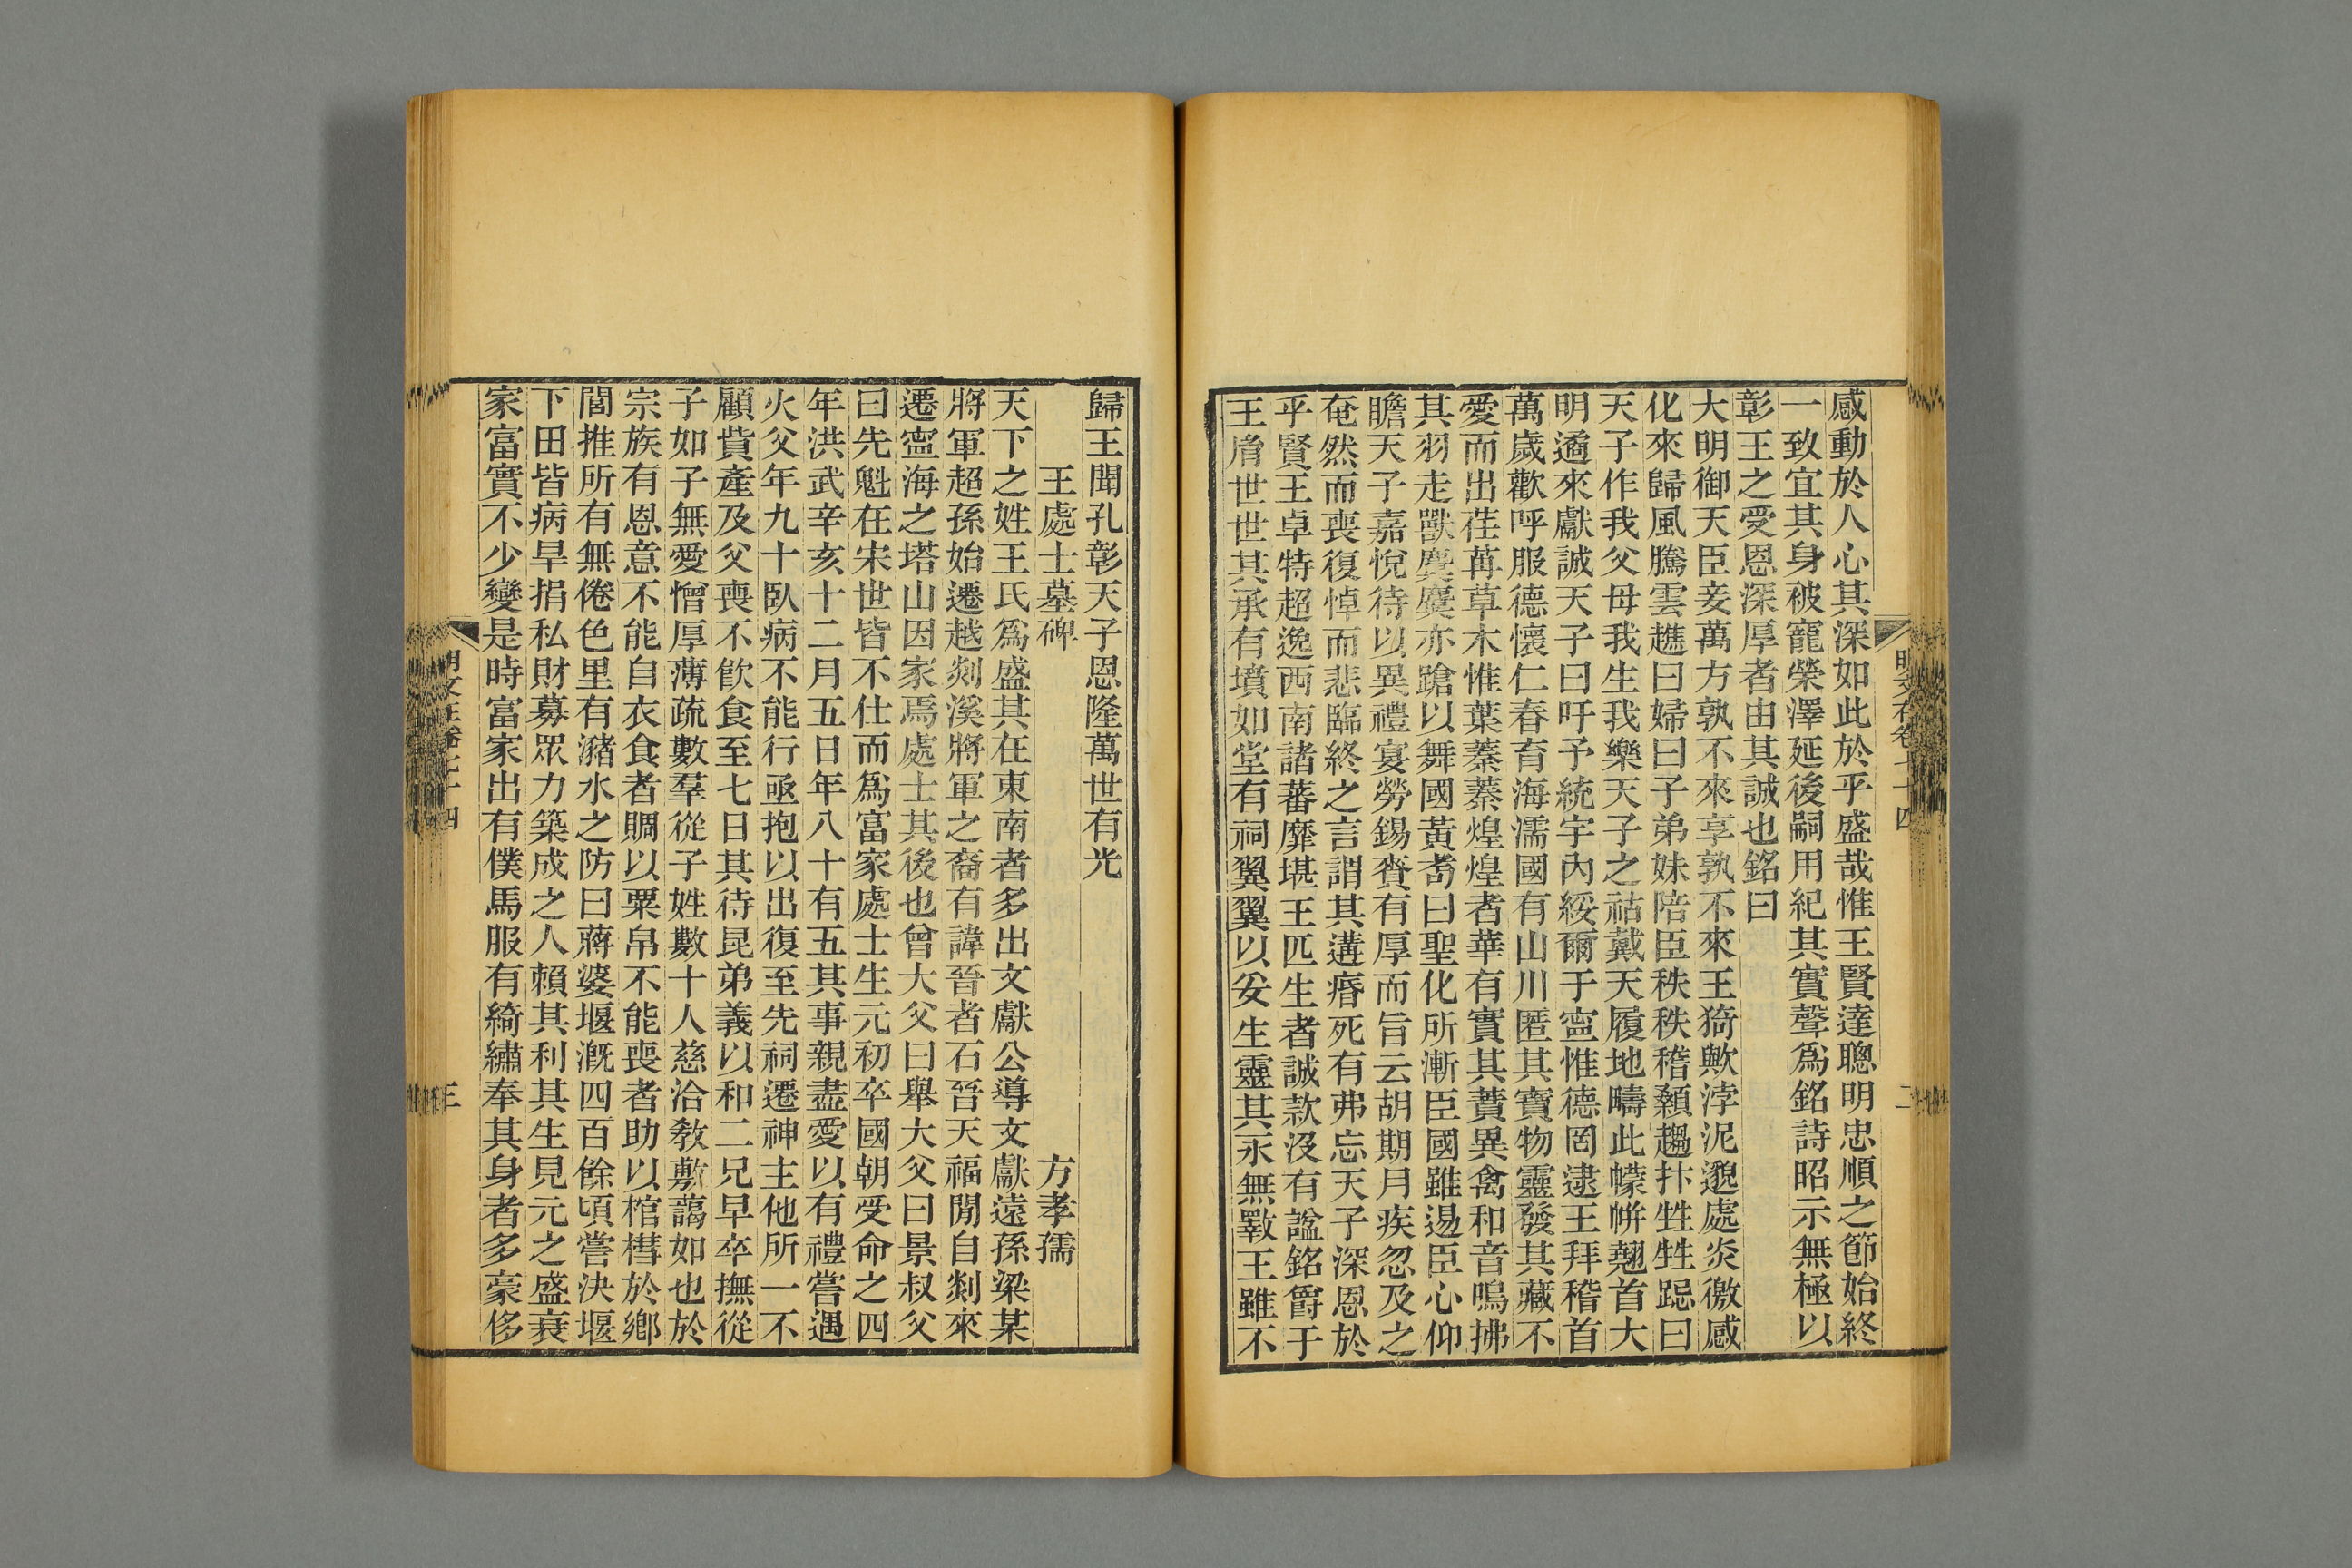 感動於人心其深如此於乎盛哉惟王賢達聰明忠順之節始終
一致宜其身被寵榮澤延後嗣用紀其實聲爲銘詩昭示無極以
彰王之受恩深厚者由其誠也銘曰
大明御天臣妾萬方孰不來享孰不來王猗歟浡泥邈處炎徼感
化來歸風騰雲趭曰婦曰子弟妹陪臣秩秩稽顙趨抃甡甡跽曰
天子作我父母我生我樂天子之祜戴天履地疇此幪帡翹首大
明遹來獻誠天子曰吁予統宇內綏爾于寧惟德罔逮王拜稽首
萬歲歡呼服德懷仁春育海濡國有山川匿其寶物靈發其藏不
愛而出荏苒草木惟葉蓁蓁煌煌者華有實其蕡異禽和音鳴拂
其羽走獸麌麌亦蹌以舞國黃耇曰聖化所漸臣國雖逷臣心仰
瞻天子嘉悅待以異禮宴勞錫賚有厚而旨云胡期月疾忽及之
奄然而喪復悼而悲臨終之言謂其遘瘠死有弗忘天子深恩於
乎賢王卓特超逸西南諸蕃靡堪王匹生者誠款沒有諡銘爵于
王膺世世其承有墳如堂有祠翼翼以妥生靈其永無斁王雖不
明文在卷七十四
二
歸王聞孔彰天子恩隆萬世有光
王處士墓碑　方孝孺
天下之姓王氏爲盛其在東南者多出文獻公導文獻遠孫梁某
將軍超孫始遷越剡溪將軍之裔有諱晉者石晉天福閒自剡來
遷寧海之塔山因家焉處士其後也曾大父曰舉大父曰景叔父
曰先魁在宋世皆不仕而爲富家處士生元初卒國朝受命之四
年洪武辛亥十二月五日年八十有五其事親盡愛以有禮嘗遇
火父年九十臥病不能行亟抱以出復至先祠遷神主他所一不
顧貲產及父喪不飮食至七日其待昆弟義以和二兄早卒撫從
子如子無愛憎厚薄疏數羣從子姓數十人慈洽教敷藹如也於
宗族有恩意不能自衣食者賙以粟帛不能喪者助以棺槥於鄉
閭推所有無倦色里有瀦水之防曰蔣婆堰漑四百餘頃嘗決堰
下田皆病旱捐私財募眾力築成之人賴其利其生見元之盛衰
家富實不少變是時富家出有僕馬服有綺繡奉其身者多豪侈
明文在卷七十四
三